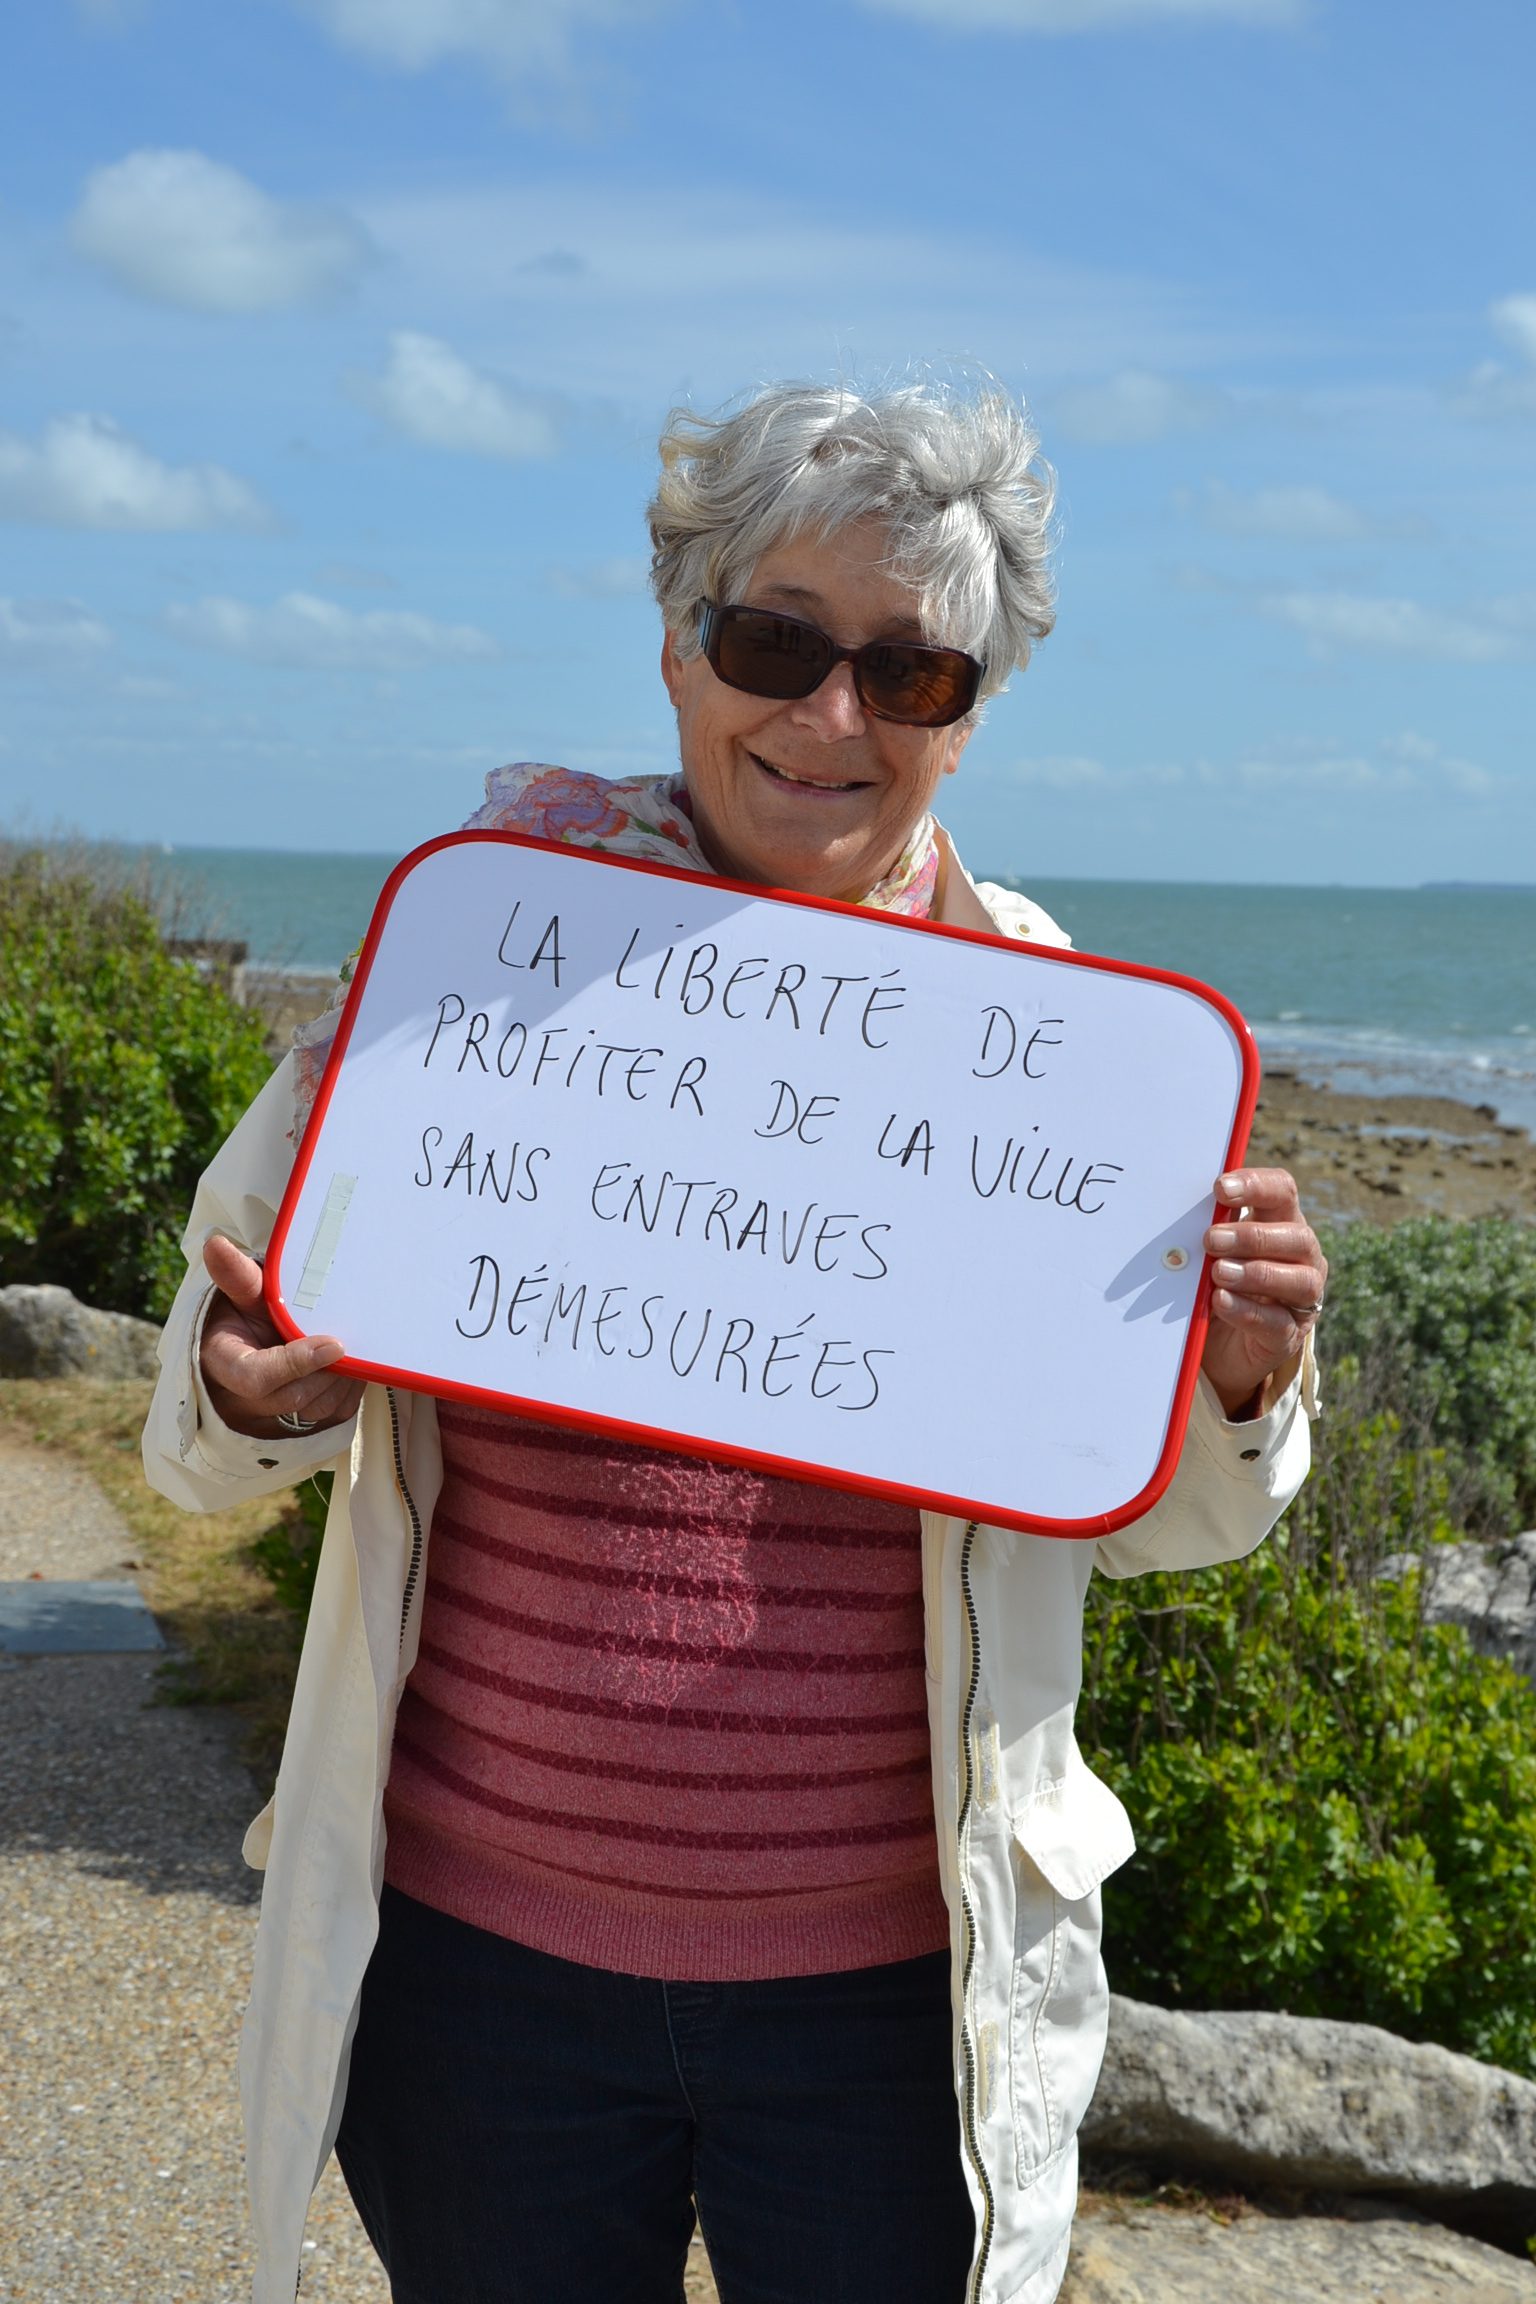 LA LIBERTÉ DE
PROFITER DE LA VILLE
SANS ENTRAVES
DÉMESURÉES